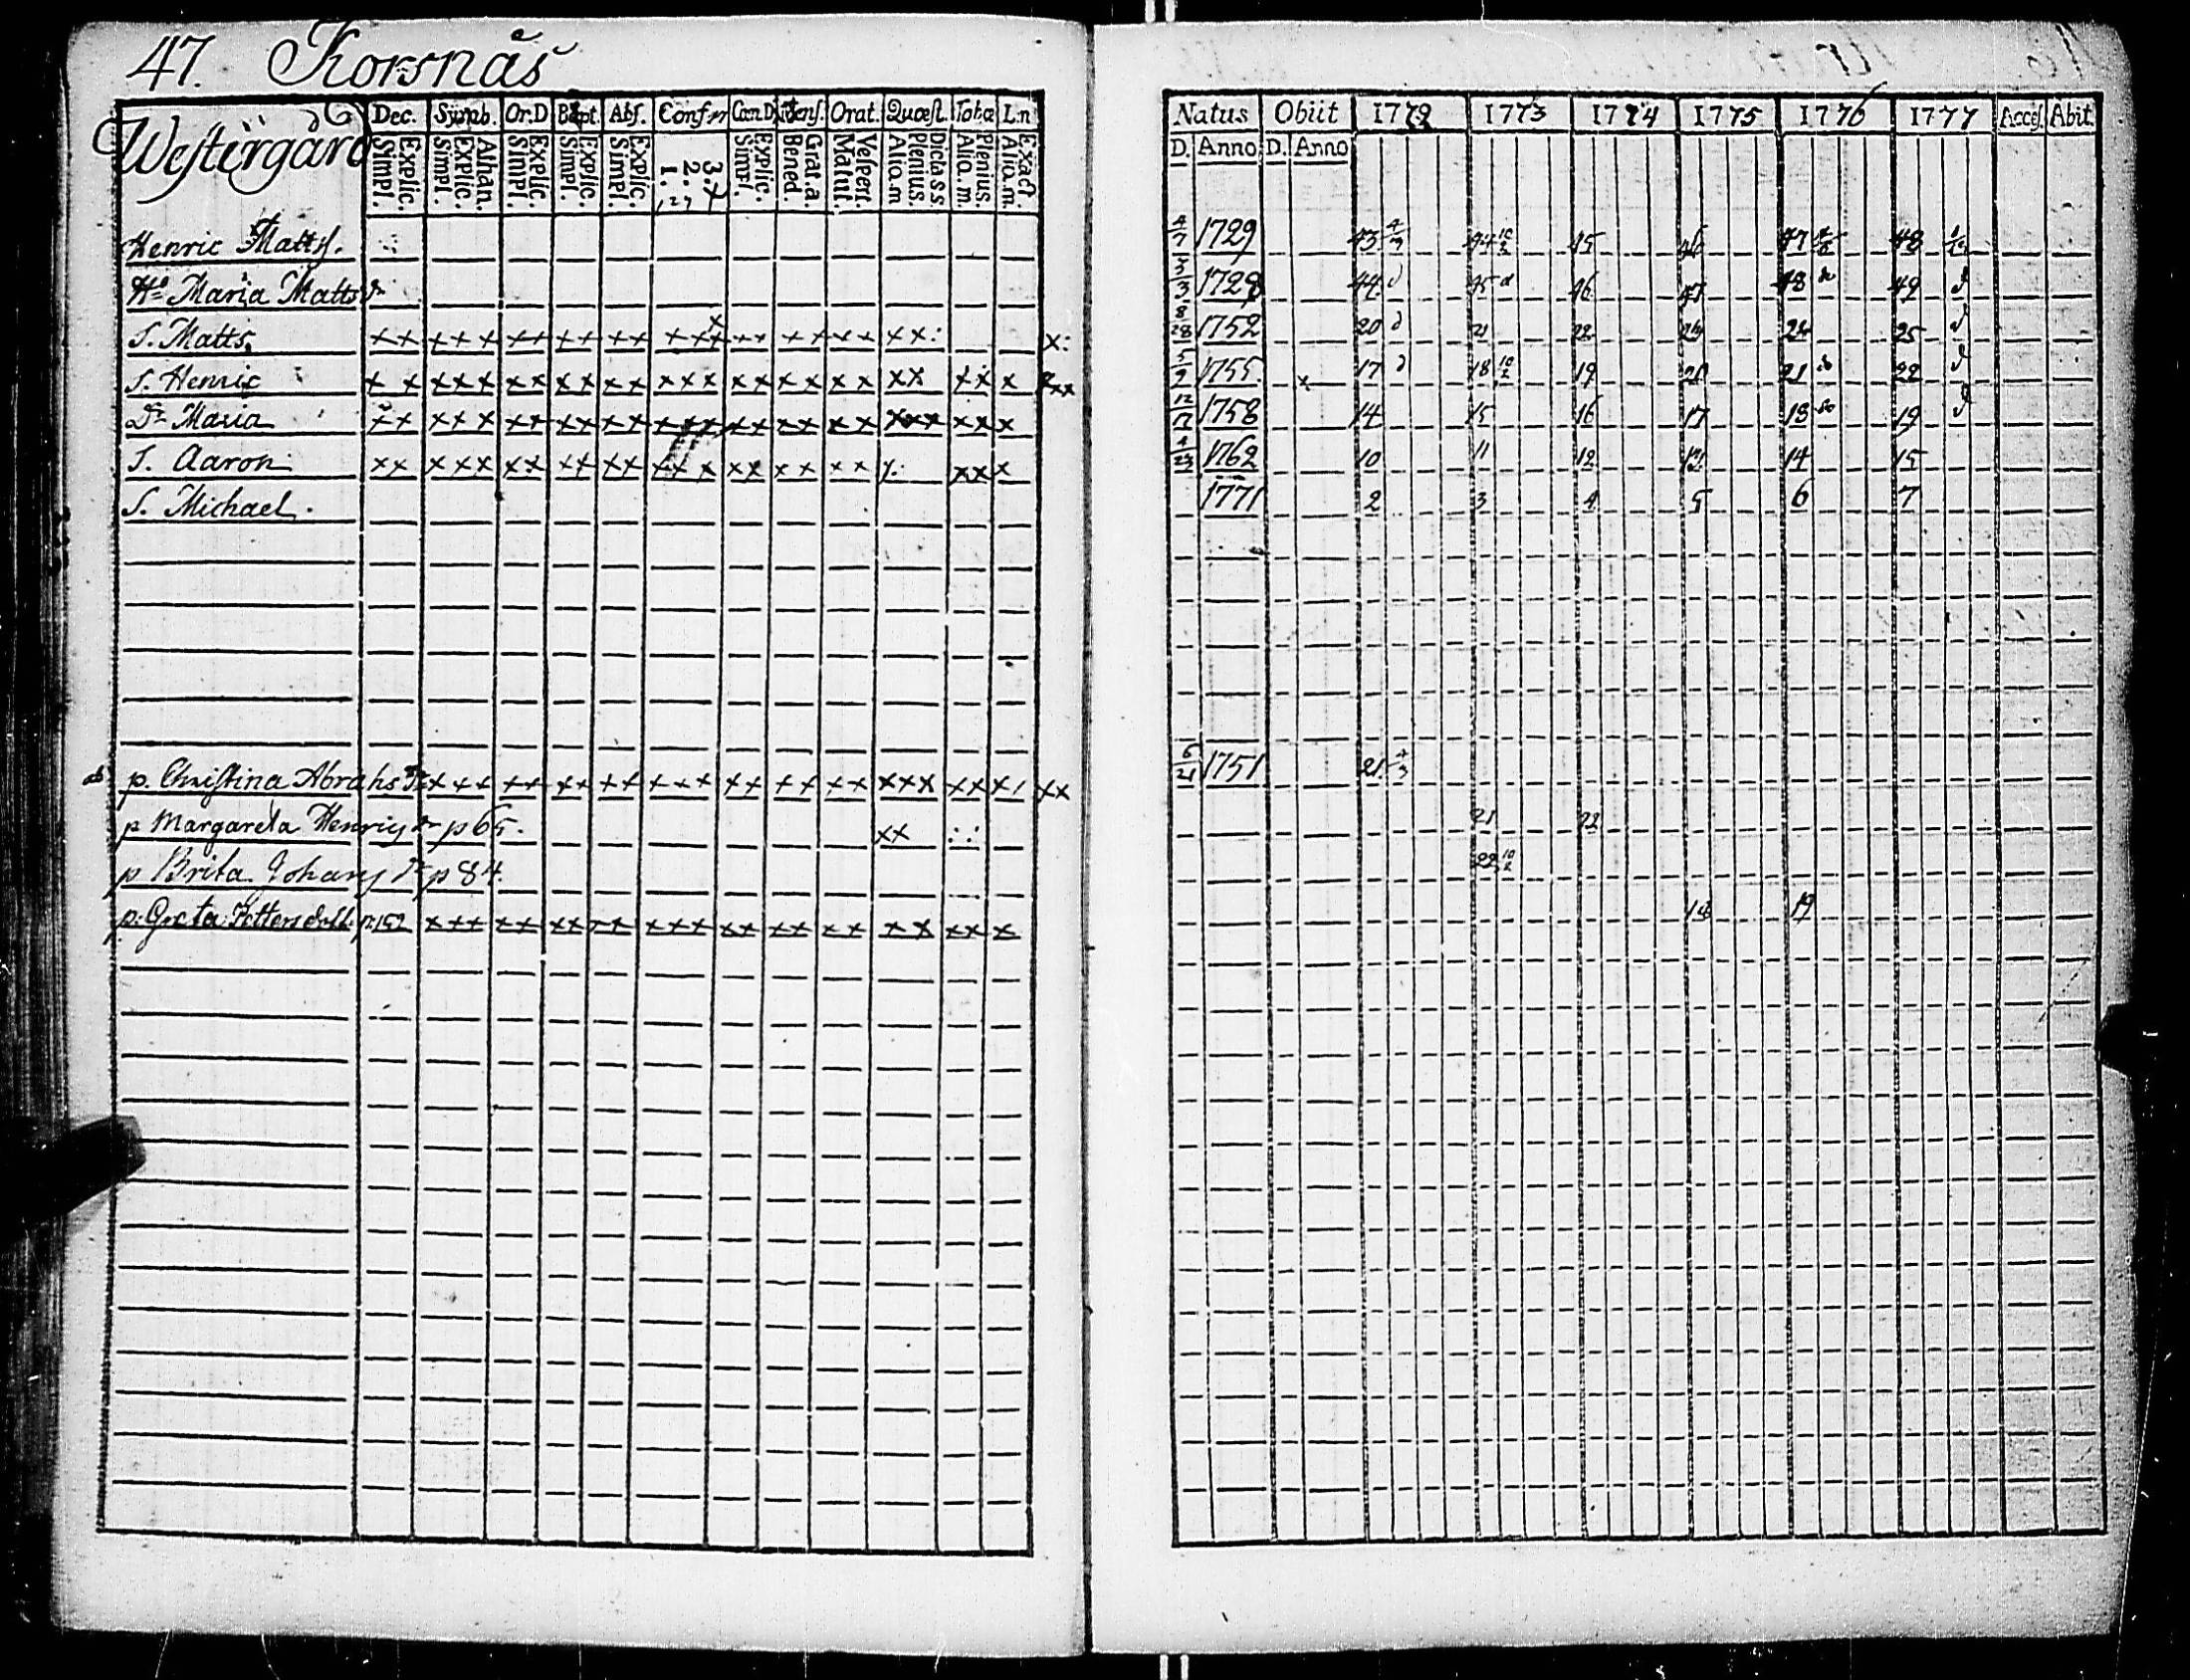 47. Korsnäs
Westergård
Dec. Symb. Or.D Bapt. Abs. Confess Cœn.D Mens. Orat. Quæst. Tob.æ L.n
Simpl. Explic. Simpl. Explic. Athan. Simpl. Explic. Simpl. Explic. Simpl. Explic. 1. 2. 3. Simpl. Explic. Bened. Grat.a. Matut. Vespert. Alio.m Plenius. Dictass Alio.m. Plenius. Alio.m. Exact
Natus Obiit 1772 1773 1774 1775 1776 1777 Acces. Abit.
D. Anno D. Anno
Henric Matts. 4/7 1729 43 4/3 44 10/2 45 46 47 48
Hu Maria Matts dr 3/3 1728 44 d 45 d 46 47 48 do 49 d
S. Matts xx xxx xx xx xx xxx xx xx xx xx: x: 8/28 1752 20 d 21 22 25 d
S. Henric xx xxx xx xx xx xxx xx xx xx xx xx x 1755 x 17 d 18 10/2 19 20 21 do 22 d
Dr Maria xx xxx xx xx xx xxx xx xx xx xxx xx x 12/17 1758 14 15 16 17 18 do 19 d
S. Aaron xx xxx xx xx xx xxx xx xx xx x: xx x 4/23 1762 10 11 12 13 14 15
S. Michael. 1771 2 3 4 5 6 7
p. Christina Abrahs Dr xxx xx xx xx xxx xx xx xx xxx xx x xx 6/21 1751 21 4/3
p Margareta Henrics dr p 65. xx 21 22
p Brita Johans Dr p 84. 22 10/2
p. Greta Pettersdott. p. 152 xxx xx xx xx xxx xx xx xx xx xx x 18 19